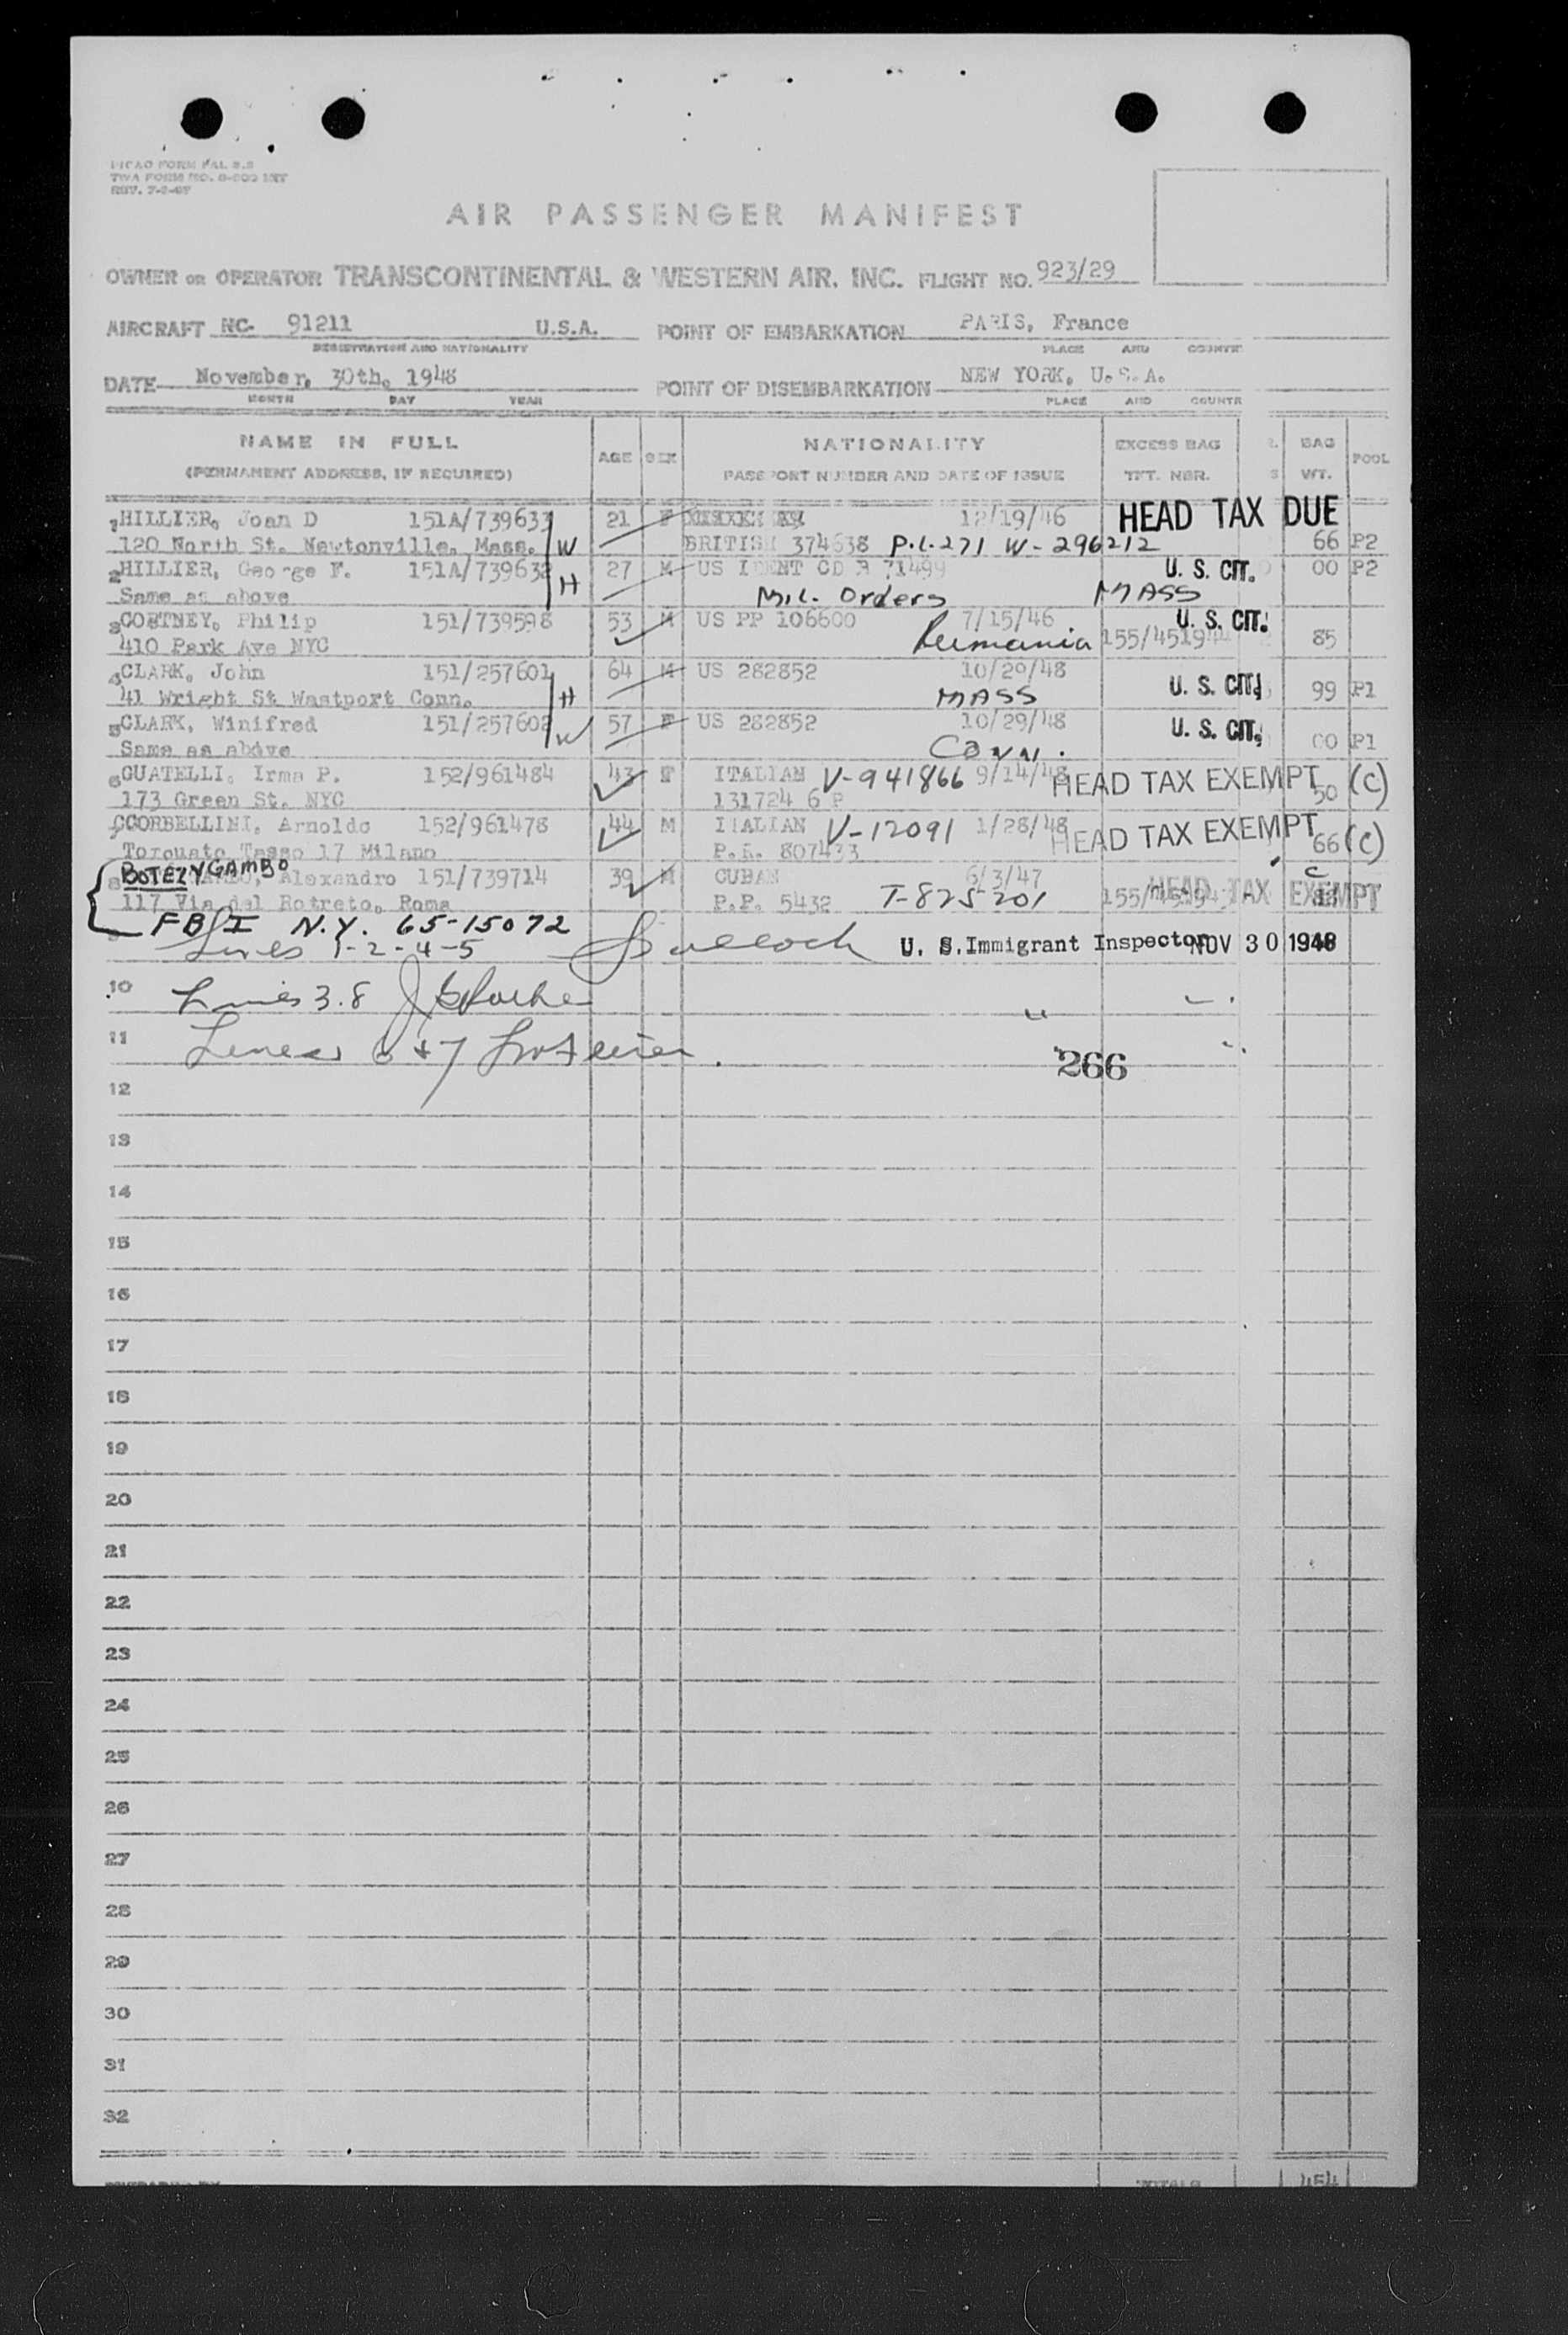 AIR PASSENGER MANIFEST
OWNER OR OPERATOR TRANSCONTINENTAL & WESTERN AIR, INC. FLIGHT NO. 923/29
AIRCRAFT NC- 91211 U.S.A. POINT OF EMBARKATION PARIS, France
REGISTRATION AND NATIONALITY PLACE AND COUNTR
DATE November, 30th, 1948 POINT OF DISEMBARKATION NEW YORK, U.S.A.
MONTH DAY YEAR PLACE AND COUNTR
NAME IN FULL AGE SEX NATIONALITY EXCESS BAG BAG POOL
(PERMANENT ADDRESS, IF REQUIRED) PASSPORT NUMBER AND DATE OF ISSUE TKT. NBR. S WT.
1 HILLIER, Joan D 151A/739633 21 F 12/19/46 HEAD TAX DUE
120 North St. Newtonville, Mass. W BRITISH 374638 P.L.271 W-296212 66 P2
2 HILLIER, George F. 151A/739632 27 M US IDENT CD 71499 U. S. CIT. 00 P2
Same as above H Mil. Orders MASS
3 COSTNEY, Philip 151/739598 53 M US PP 106600 7/15/46 U. S. CIT.
410 Park Ave NYC Rumania 155/4519 85
4 CLARK, John 151/257601 64 M US 282852 10/29/48 U. S. CIT.
41 Wright St Wastport Conn. H MASS 99 P1
5 CLARK, Winifred 151/257602 57 F US 282852 10/29/48 U. S. CIT.
Same as above W CONN. 00 P1
6 GUATELLI, Irma P. 152/961484 43 F ITALIAN V-941866 9/14/48 HEAD TAX EXEMPT (C)
173 Green St. NYC 131724 6 P 50
CORBELLINI, Arnoldo 152/961478 44 M ITALIAN V-12091 1/28/48 HEAD TAX EXEMPT
Torquato Tasso 17 Milano P.R. 807433 66 (C)
8 BOTEZ Y GAMBO Alexandro 151/739714 39 M CUBAN 6/3/47 C
117 Via del Rotreto, Roma P.P. 5432 T-825201 155/ HEAD TAX EXEMPT
FBI N.Y. 65-15072
Lines 1-2-4-5 U. S. Immigrant Inspector NOV 30 1948
10 Lines 3.8 "
11 Lines 6 + 7 266
12
13
14
15
16
17
18
19
20
21
22
23
24
25
26
27
28
29
30
31
32
TOTALS 454